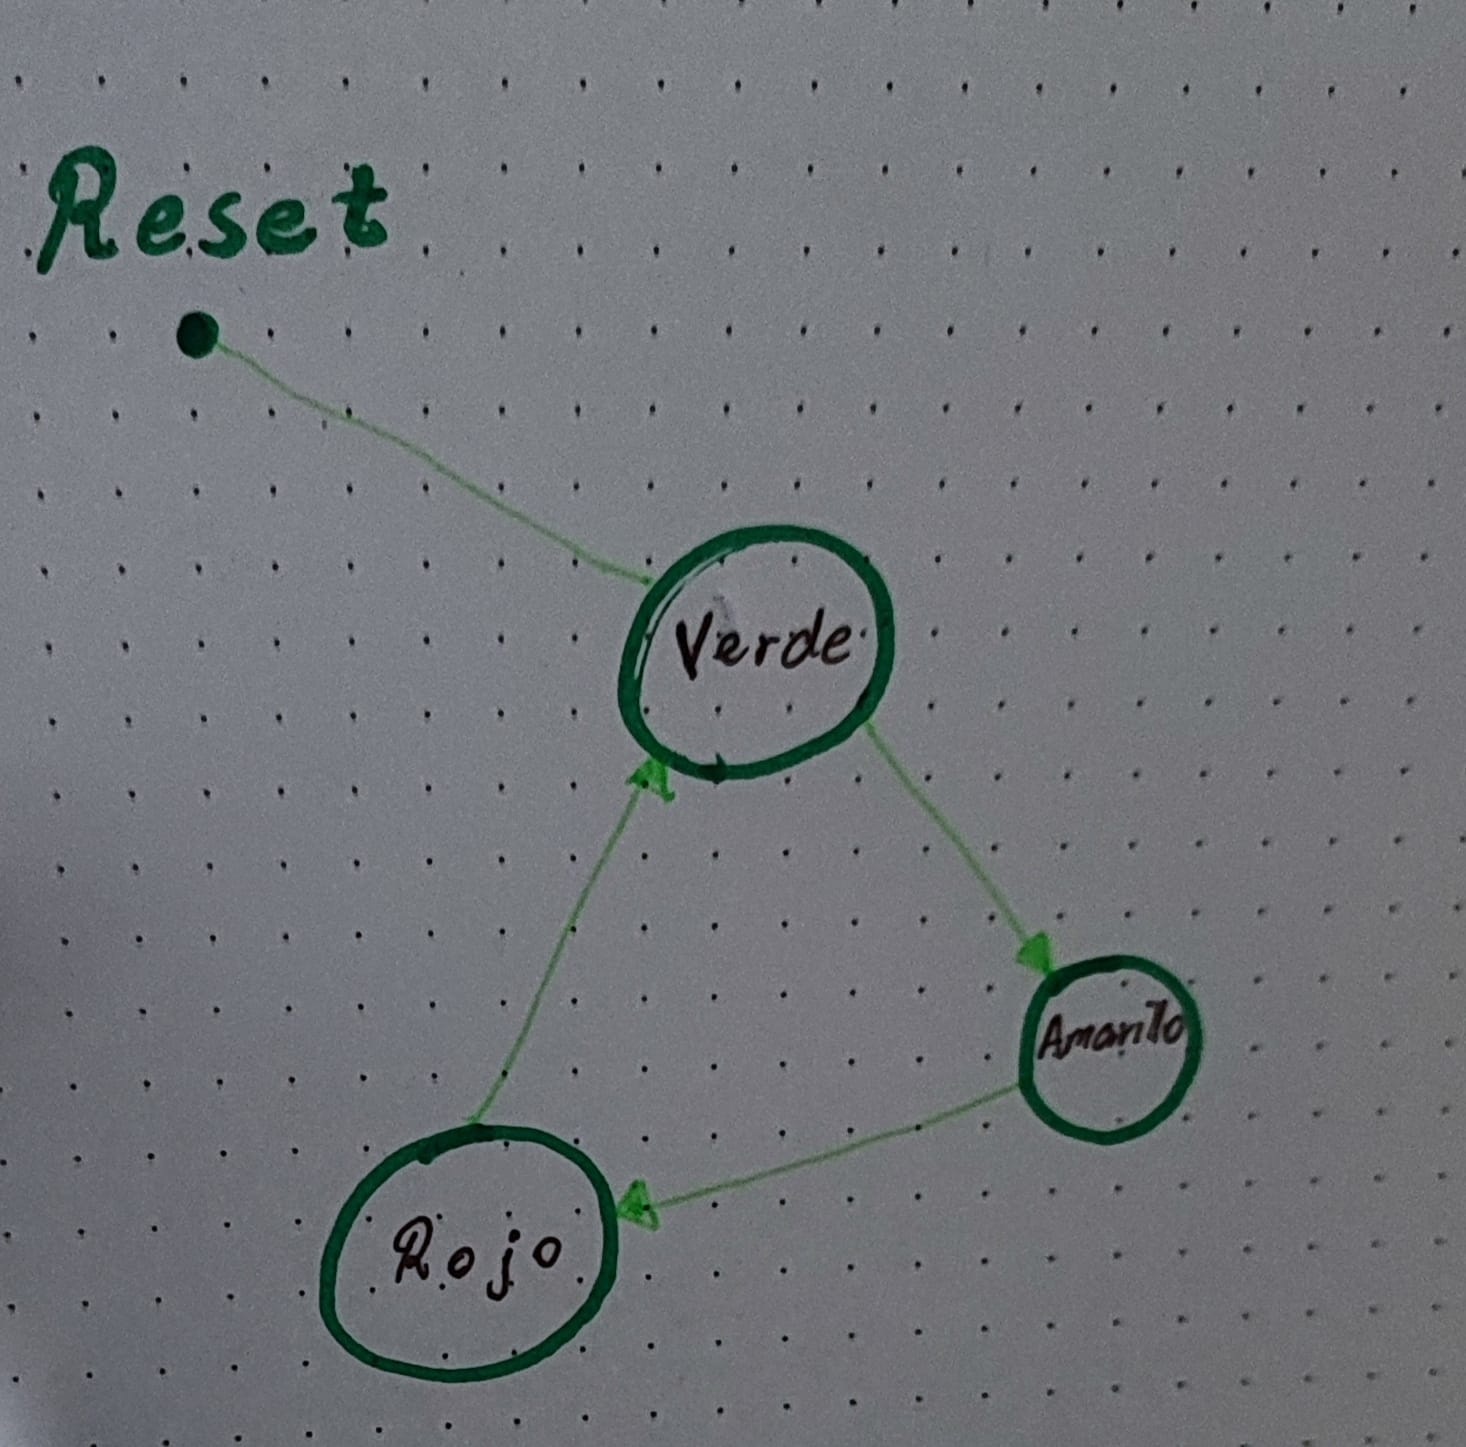 Reset
Verde
Amarillo
Rojo